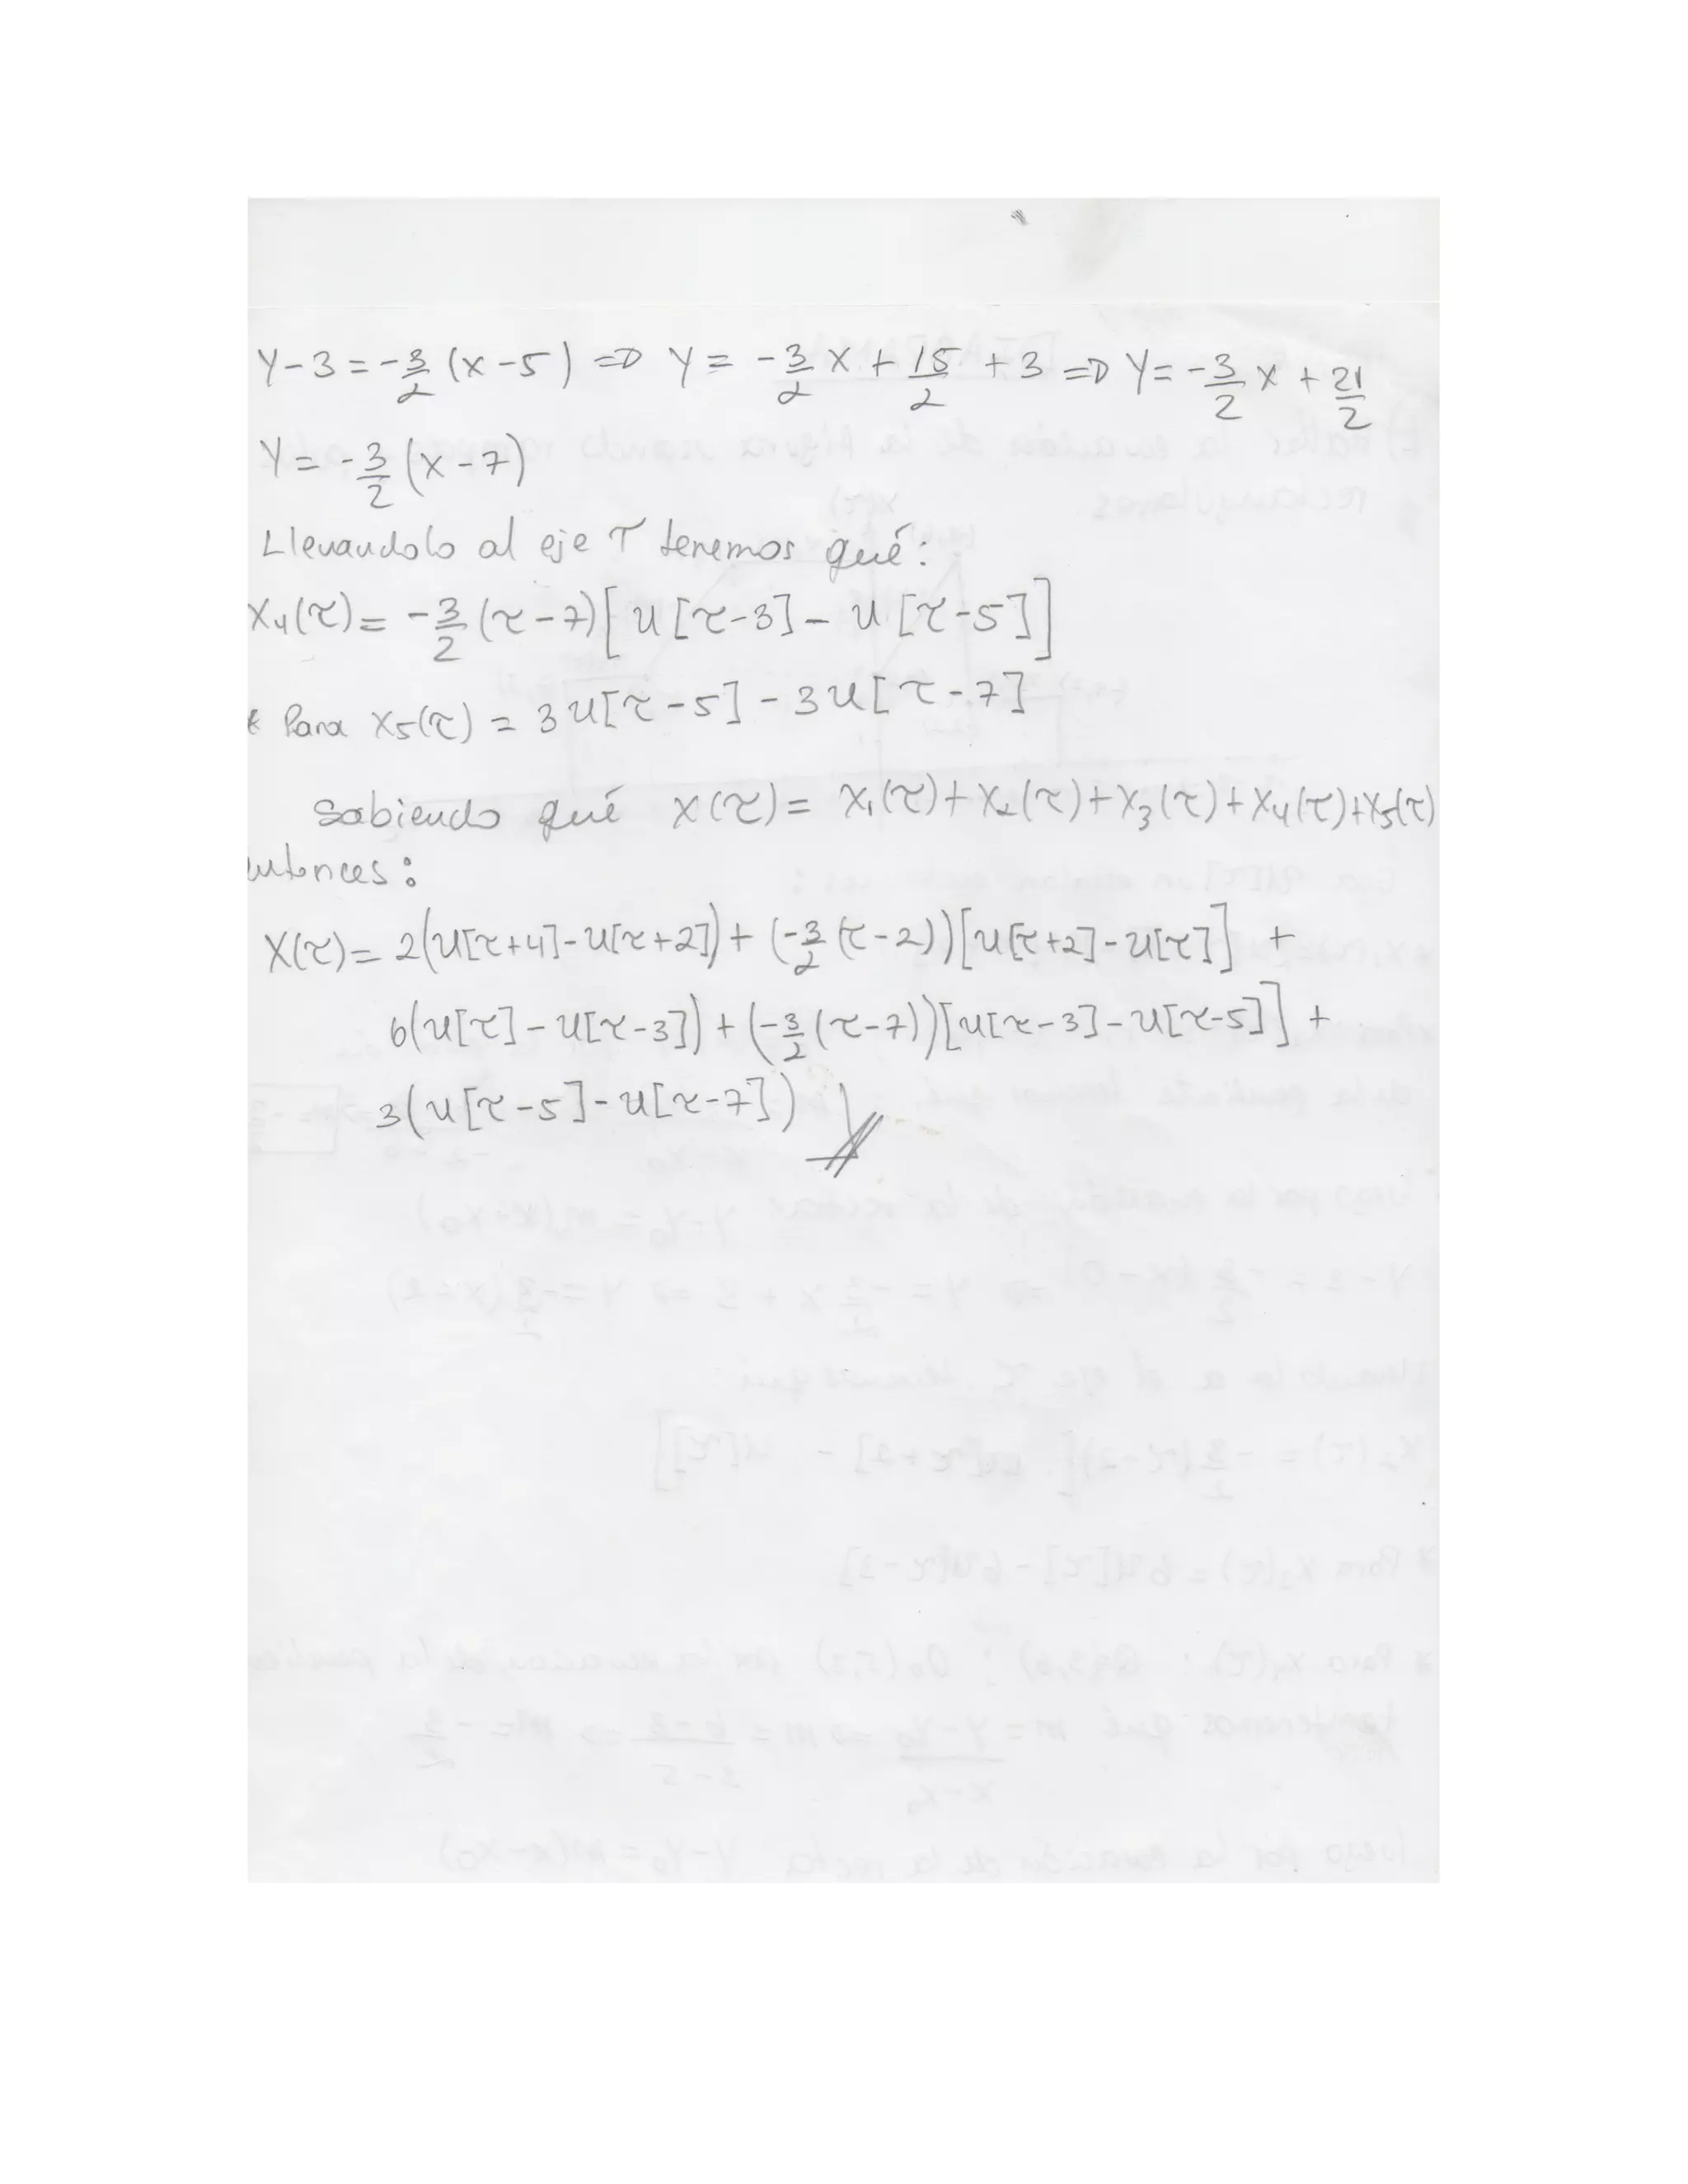 Y-3 = -3/2 (x-5) => Y = -3/2 x + 15/2 + 3 => Y = -3/2 x + 21/2
Y = -3/2 (x-7)
Llevandolo al eje τ tenemos qué:
X₄(τ) = -3/2 (τ-7)[u[τ-3] - u[τ-5]]
* Para X₅(τ) = 3u[τ-5] - 3u[τ-7]
Sabiendo qué X(τ) = X₁(τ)+X₂(τ)+X₃(τ)+X₄(τ)+X₅(τ)
entonces:
X(τ) = 2(u[τ+4]-u[τ+2]) + (-3/2 (τ-2))[u[τ+2]-u[τ]] +
6(u[τ] - u[τ-3]) + (-3/2 (τ-7))[u[τ-3]-u[τ-5]] +
3(u[τ-5]-u[τ-7])